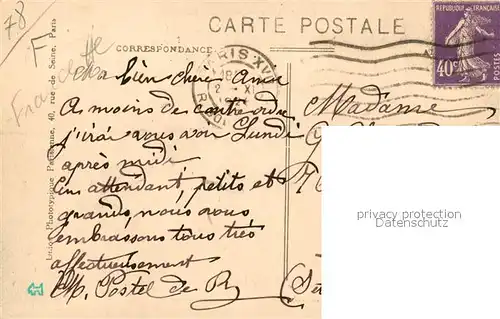 78
CARTE POSTALE
RÉPUBLIQUE FRANÇAISE
40c
POSTES
F
CORRESPONDANCE
PARIS XV
Ma bien chère Amie
A moins de contre-ordre
j'irai vous voir Lundi
après midi
En attendant, petits et
grands, nous vous
embrassons tous très
affectueusement
M. Postel de R
Madame
privacy protection
Datenschutz
40, rue de Seine, Paris
Phototypique Parisienne,